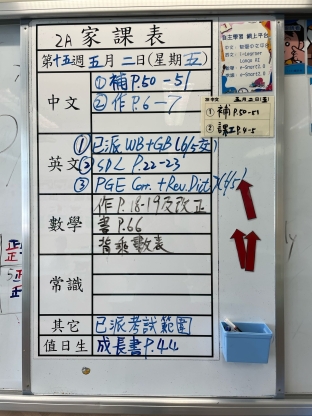 2A 家課表
第十五週 五月二日(星期五)
中文
①補P.50-51
②作P.6-7
英文
①已派WB+GB(6/5交)
②SPL P.22-23
③PGE Corr.+Rev.Dict(6/5)
數學
作P.18-19及改正
書P.66
背乘數表
常識
其它
已派考試範圍
值日生
成長書P.44
自主學習 網上平台
中文
五月二日(五)
①補P.50-51
②課工P.4-5
正
正